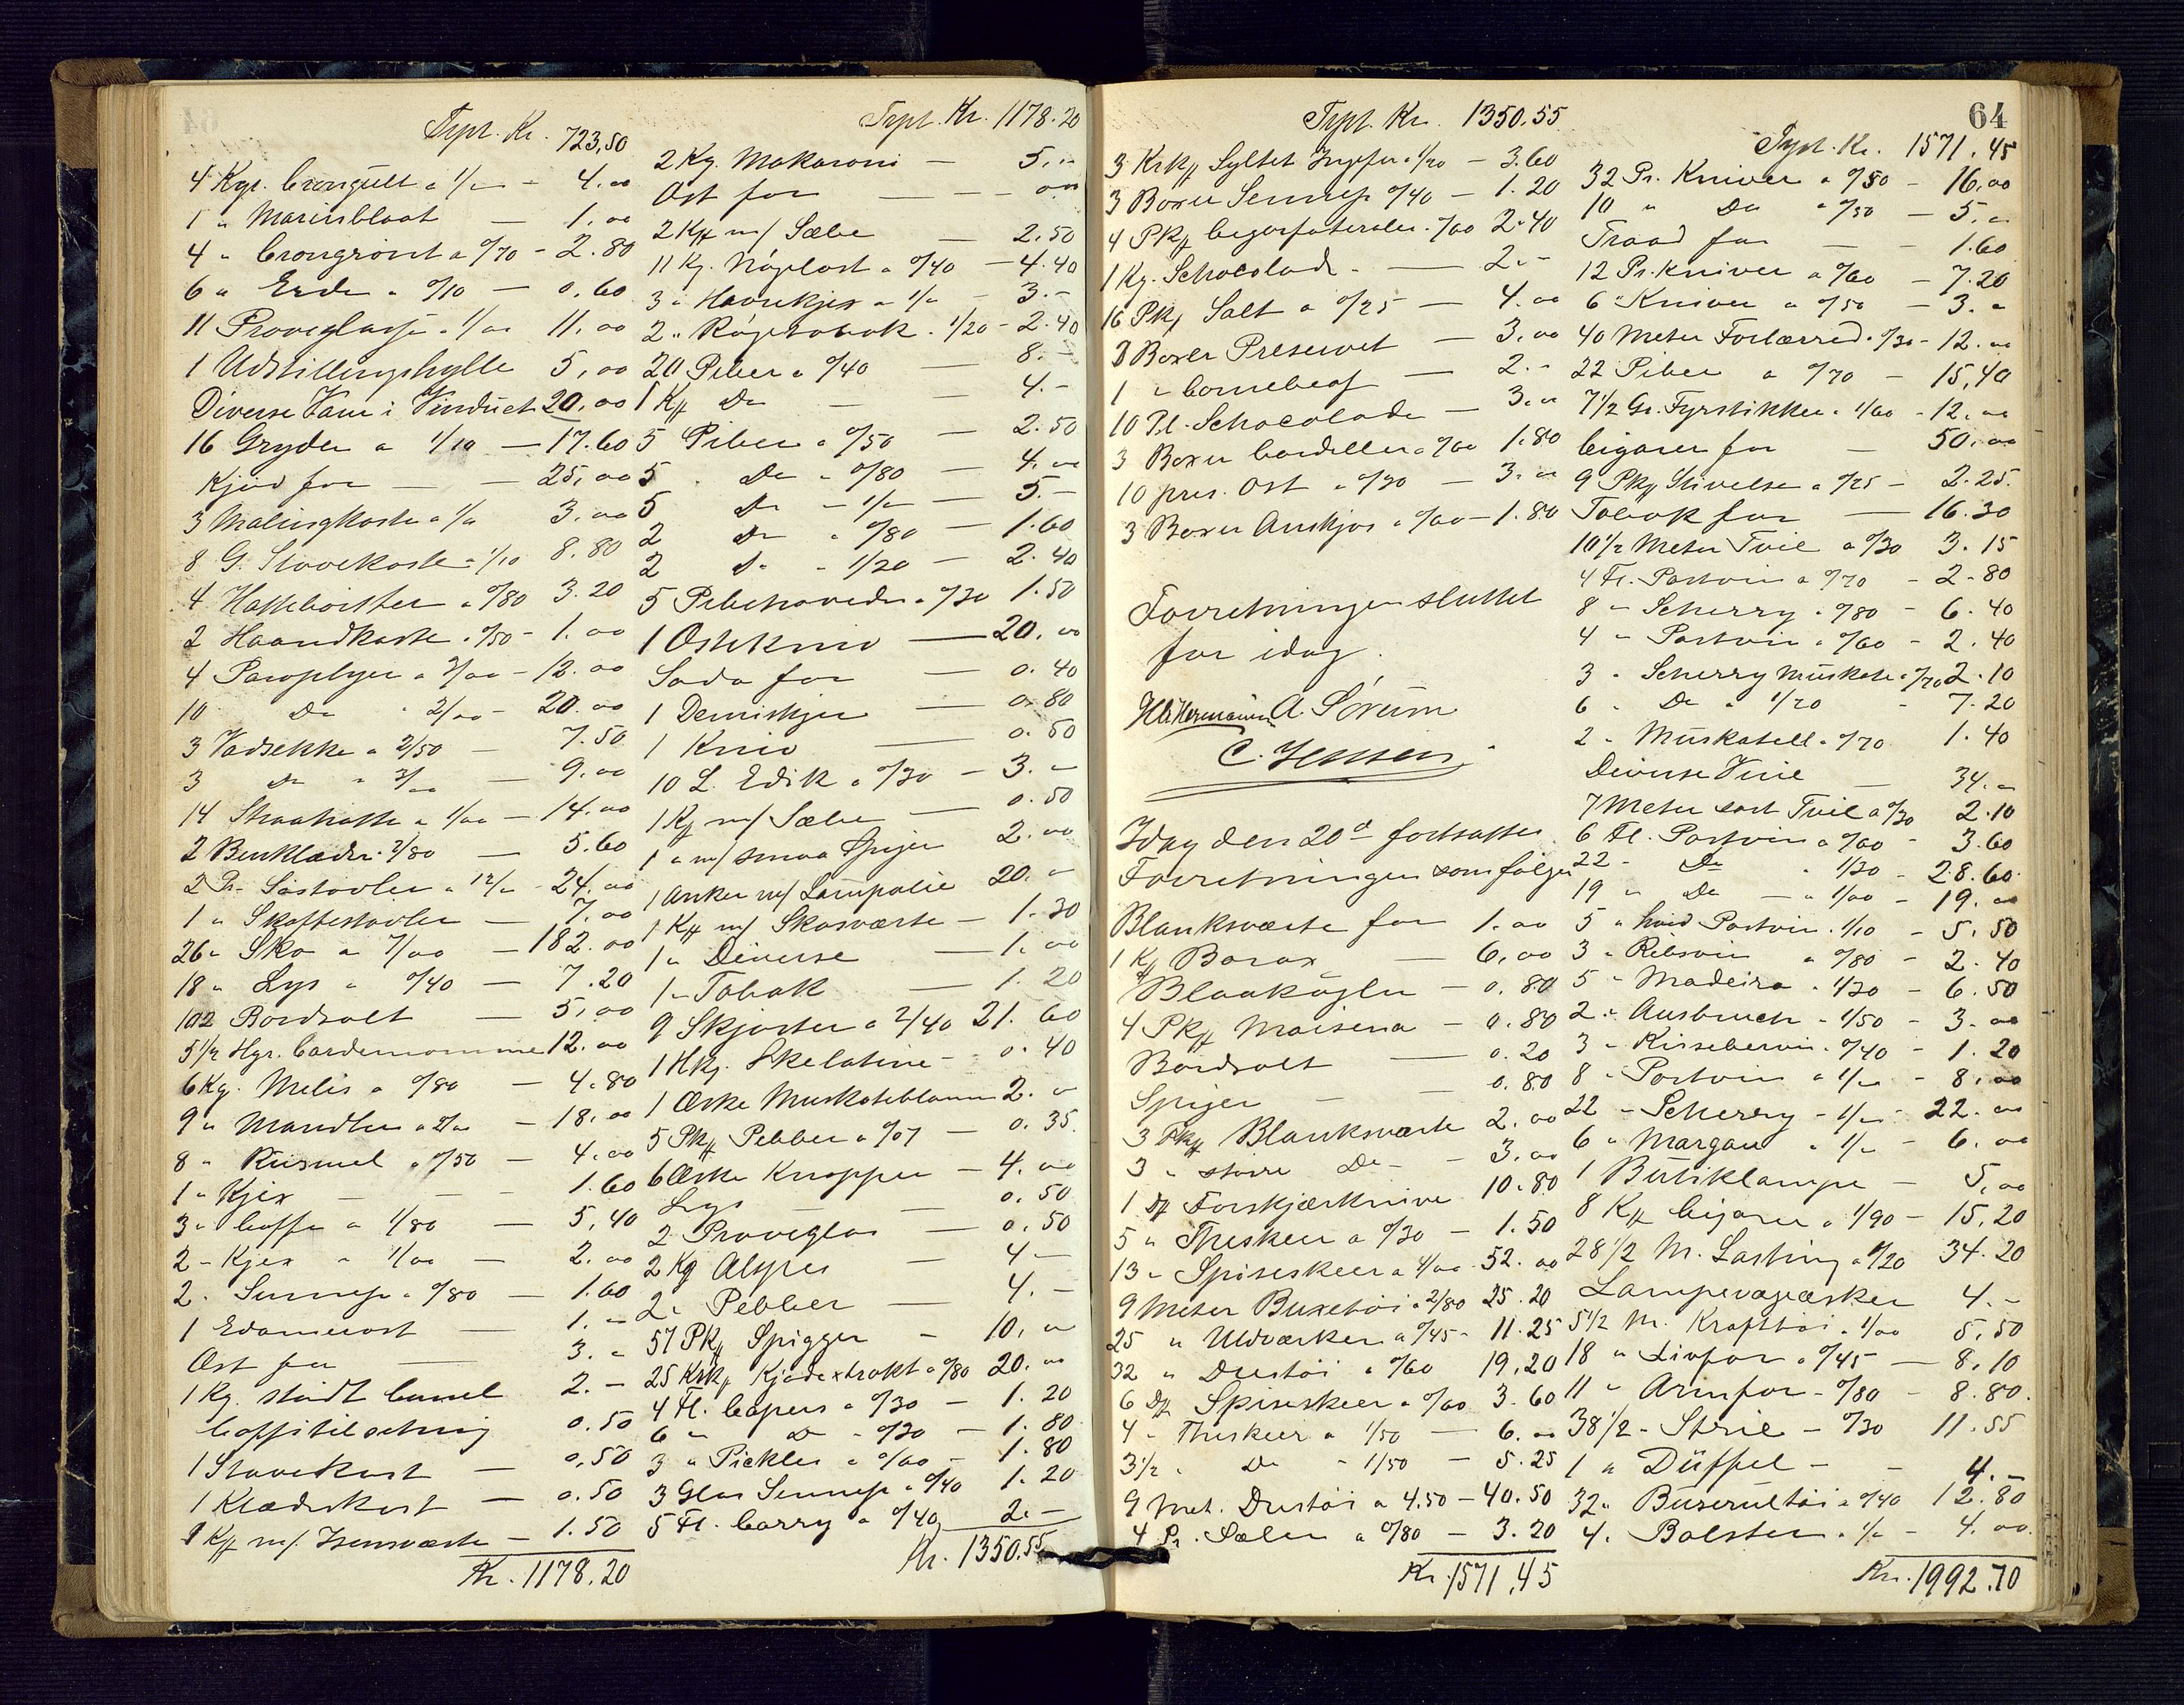 Trpt. Kr. 723,50
4 Kgr. Crongult a 1/" - 4.00
1 " Marinblaat — 1.00
4 " Crongrönt a 0/70 - 2.80
6 " Erde a 0/10 — 0.60
11 Pröveglasse a 1/00 11.00
1 Udstillingshylle 5,00
Diverse Varer i Vinduet 20,00
16 Gryder a 1/10 — 17.60
Kjöd for — — 25,00
3 Malingkoste a 1/" 3.00
8 G. Stovekoste a 1/10 8.80
4 Hattebörster a 0/80 3.20
2 Haandkoste a 0/50 - 1.00
4 Paraplyer a 3/00 - 12.00
10 Do a 2/00 - 20.00
3 Vadsekke a 2/50 - 7.50
3 Do a 3/00 — 9.00
14 Straahatte a 1/00 — 14.00
2 Benklæder a 2/80 — 5.60
2 Pr. Söstövler a 12/" - 24.00
1 " Skaftestövler — 7.00
26 " Sko a 7/00 — 182.00
18 " Lys a 0/40 — 7.20
102 Bordsalt — 5,00
5 1/2 Hgr. Cardemomme 12.00
6 Kg. Melis a 0/80 — 4.80
9 " Mandler a 2/00 — 18.00
8 " Kusmel a 0/50 — 4.00
1 " Kjex — — 1.60
3 " Caffe a 1/80 — 5.40
2 " Kjex a 1/00 — 2.00
2 " Sennep a 0/80 — 1.60
1 Edamerost — 1.-
Ost for — 3.-
1 Kg. stödt Canel 2.-
Caffitilsetning 0.50
1 Stovekost — 0.50
1 Klædeskost — 0.50
1 Kff m/ Isensværte — 1.50
Kr. 1178.20
Trpt. Kr. 1178.20
2 Kg. Makaroni — 5.-
Ost for —
2 Kff m/ Sæbe — 2.50
11 Kg. Nögelost a 0/40 — 4.40
3 " Havrekjex a 1/" - 3.-
2 " Rögetobak a 1/20 - 2.40
20 Piber a 0/40 — 8.-
1 Kff Do — 4.-
5 Piber a 0/50 — 2.50
5 Do a 0/80 — 4.00
5 Do a 1/" — 5.-
2 Do a 0/80 — 1.60
2 Do a 1/20 — 2.40
5 Pibehoveder a 0/30 1.50
1 Ostekniv — 20.00
Soda for — 0.40
1 Demishjer 0.80
1 Kniv — 0.50
10 L. Edik a 0/30 — 3.-
1 Kff m/ Sæbe — 0.50
1 " m/ smaa Spiger 2.00
1 Anker m/ Lampolie 20.-
1 Kff m/ Skosværte — 1.30
1 " Diverse — 1.00
1 " Tobak — 1.20
9 Skjorter a 2/40 21.60
1 Hkg. Skelatine - 0.40
1 Æske Muskateblomme 2.-
5 Pkff Pebber a 0/07 — 0.35
6 Æske Knapper — 4.00
Lys — 0.50
2 Pröveglas — 0.50
2 Kg Alspes — 4-
2 " Pebber — 4.-
57 Pkff Spigger - 10.00
25 Krkff Kjödextrakt a 0/80 20.00
4 Fl. Capers a 0/30 — 1.20
6 " Do a 0/30 — 1.80
3 " Pickles a 0/60 - 1.80
3 Glas Sennep a 0/40 1.20
5 Fl. Carry a 0/40 2.-
Kr. 1350.55
64
Trpt. Kr. 1350.55
3 Krkff Syltet Ingefær a 1/20 — 3.60
3 Boxer Sennep 0/40 — 1.20
4 Pkff Cigarfoteraler a 0/60 2.40
1 Kg. Schocolade — 2.-
16 Pkf Salt a 0/25 — 4.00
3 Boxer Preservet — 3.00
1 " Cornebeaf — 2.-
10 Pl. Schocolade — 3.00
3 Boxer Sardeller a 0/60 1.80
10 pres. Ost a 0/30 — 3.00
3 Boxer Anshjos a 0/60 - 1.80
Forretningen sluttet
for idag.
A. Sörum
C. Jensen
Idag den 20d fortsattes
Forretningen som fölger
Blanksværte for 1.00
1 Kf Borax — 6.00
Blaakugler — 0.80
4 Pkff Maisena — 0.80
Bordsalt — 0.20
Spiger — 0.80
3 Pkff Blanksværte 2.00
3 " större Do - 3.00
1 Df Forskjærknive 10.80
5 " Theskeer a 0/30 — 1.50
13 " Spiseskeer a 4/00 52.00
9 Meter Buxetöi a 2/80 25.20
25 " Uldværken a 0/45 - 11.25
32 " Drestöi a 0/60 19.20
6 Df Spiseskeer a 0/60 3.60
4 " Theskeer a 1/50 — 6.00
3 1/2 " Do a 1/50 — 5.25
9 Met. Drestöi a 4.50 — 40.50
4 Pr. Sæler a 0/80 — 3.20
Kr. 1571.45
Trpt. Kr. 1571.45
32 Pr. Kniver a 0/50 - 16.00
10 " Do a 0/50 — 5.-
Traad for — 1.60
12 Pr. Kniver a 0/60 — 7.20
6 " Kniver a 0/50 — 3.-
40 Meter Forlærred a 0/30 - 12.00
22 Piber a 0/70 — 15,40
7 1/2 Gr. Fyrstikker a 1/60 - 12.00
Cigarer for — 50.00
9 Pkff Stivelse a 0/25 — 2.25.
Tobak for — 16.30
10 1/2 Meter Tvil a 0/30 3.15
4 Fl. Portvin a 0/70 - 2.80
8 " Scherry a 0/80 - 6.40
4 " Portvin a 0/60 - 2.40
3 " Scherry Muskate a 0/70 2.10
6 " Do a 1/20 - 7.20
2 " Muskatell a 0/70 1.40
Diverse Vine 34.-
7 Meter sort Tvil a 0/30 2.10
6 Fl. Portvin a 0/60 - 3.60
22 " Do a 1/30 - 28.60
19 " Do a 1/00 - 19.00
5 " hvid Portvin a 1/10 - 5.50
3 " Ribsvin a 0/80 - 2.40
5 " Madeira a 1/30 - 6.50
2 " Ausbruch a 1/50 - 3.00
3 " Kirsebervin a 0/40 - 1.20
8 " Portvin a 1/00 - 8.00
22 " Scherry a 1/00 - 22.00
6 " Margau a 1/" - 6.00
1 Butiklampe — 5,00
8 Kff Cigarer a 1/90 — 15.20
28 1/2 M. Lasting a 1/20 34.20
Lampevægeæsker 4.-
5 1/2 M. Krafttöi a 1/00 5.50
18 " Livfor a 0/45 — 8.10
11 " Armfor a 0/80 - 8.80.
38 1/2 " Strie - 0/30 11.55
1 " Düffel - - 4.-
32 " Buserultöi a 0/40 12.80
4. Bolster a 1/" - 4.00.
Kr. 1992.70